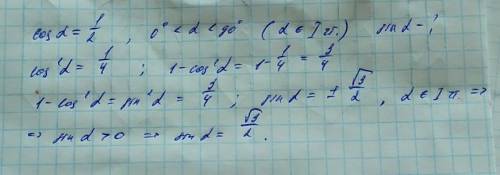 cos α = 1/2 , 0° < α < 90° (α ∈ I ч.) sin α - ?
cos² α = 1/4 ; 1 - cos² α = 1 - 1/4 = 3/4
1 - cos² α = sin² α = 3/4 ; sin α = ± √3/2 , α ∈ I ч. =>
=> sin α > 0 => sin α = √3/2 .